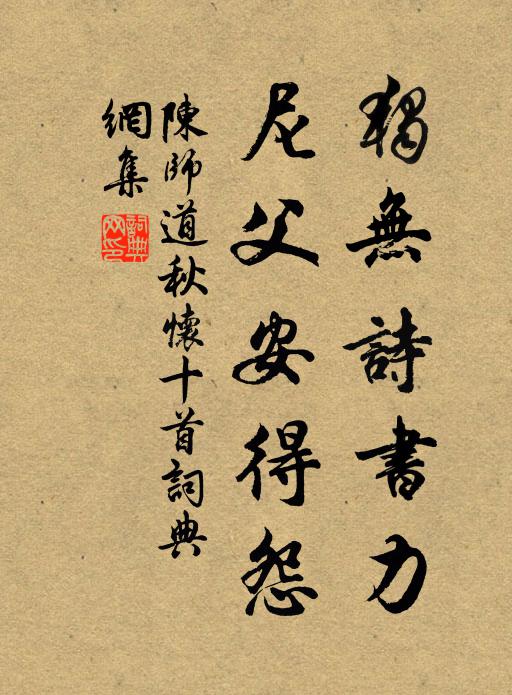 獨無詩書力
尼父安得怨
陳師道秋懷十首詞典
網集
詞典
网印